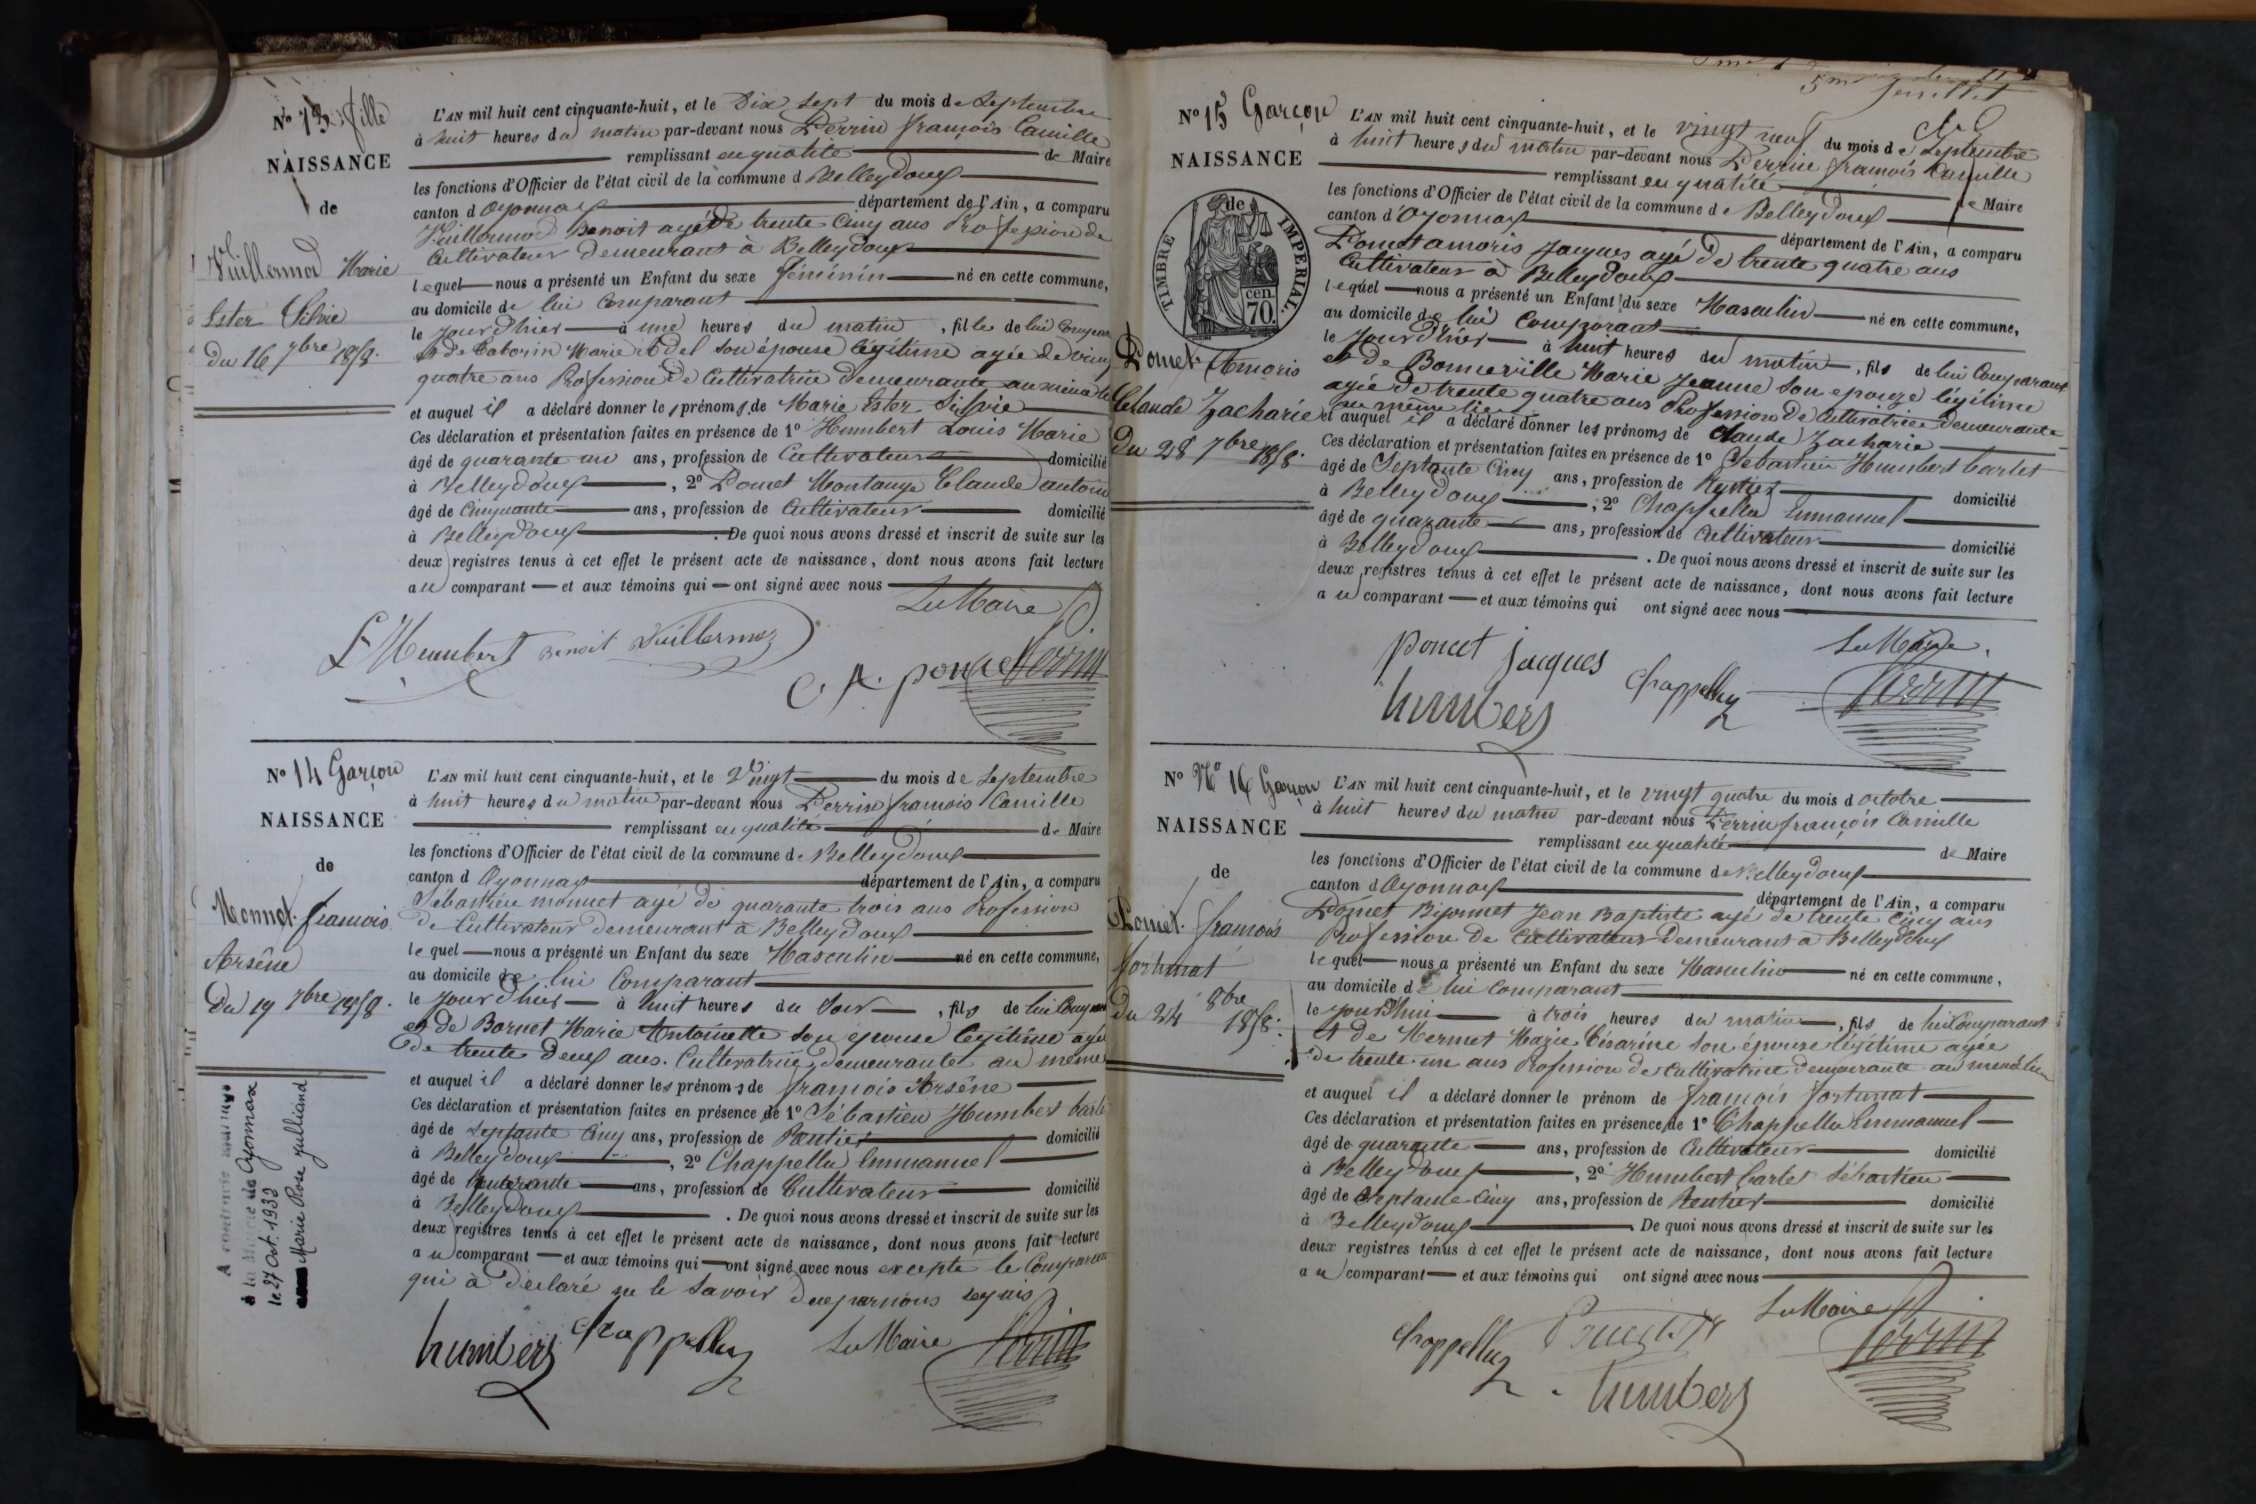 No 13 Fille
NAISSANCE
de
Vuillermod Marie
Ester Silvie
Du 16 7bre 1858.
L'AN mil huit cent cinquante-huit, et le Dix Sept du mois de Septembre
à huit heures du matin par-devant nous Perrin françois Camille
remplissant en qualité de Maire
les fonctions d'Officier de l'état civil de la commune d Belleydoux
canton d Oyonnax département de l'Ain, a comparu
Vuillermod Benoit agé de trente Cinq ans Profession de
Cultivateur demeurant à Belleydoux
lequel nous a présenté un Enfant du sexe féminin né en cette commune,
au domicile de lui Comparant
le Jour d'hier à une heures du matin, fille de lui Compar
de Marie son épouse légitime agée de vingt
quatre ans Profession de Cultivatrice demeurante au
et auquel il a déclaré donner les prénoms de Marie Ester Silvie
Ces déclaration et présentation faites en présence de 1º Humbert Louis Marie
âgé de quarante un ans, profession de Cultivateur domicilié
à Belleydoux, 2º Poncet Montange Claude antoin
âgé de Cinquante ans, profession de Cultivateur domicilié
à Belleydoux. De quoi nous avons dressé et inscrit de suite sur les
deux registres tenus à cet effet le présent acte de naissance, dont nous avons fait lecture
au comparant et aux témoins qui ont signé avec nous
Le Maire
L Humbert Benoit Vuillermoz
C. A. poncet Perrin
No 14 Garçon
NAISSANCE
de
Monnet françois
Arsène
Du 19 7bre 1858.
A contracté mariage
à la Mairie de Oyonnax
le 27 Oct. 1933
Marie Rose Julliand
L'AN mil huit cent cinquante-huit, et le Vingt du mois de Septembre
à huit heures du matin par-devant nous Perrin françois Camille
remplissant en qualité de Maire
les fonctions d'Officier de l'état civil de la commune de Belleydoux
canton d Oyonnax département de l'Ain, a comparu
Sébastien monnet agé de quarante trois ans Profession
de Cultivateur demeurant à Belleydoux
lequel nous a présenté un Enfant du sexe Masculin né en cette commune,
au domicile de lui Comparant
le Jour d'hier à huit heures du Soir, fils de lui Compara
et de Bornet Marie Antoinette son épouse légitime agée
de trente deux ans. Cultivatrice demeurante au même
et auquel il a déclaré donner les prénoms de françois Arsène
Ces déclaration et présentation faites en présence de 1º Sébastien Humbert
âgé de Septante Cinq ans, profession de Rentier domicilié
à Belleydoux, 2º Chappellu Emmanuel
âgé de quarante ans, profession de Cultivateur domicilié
à Belleydoux. De quoi nous avons dressé et inscrit de suite sur les
deux registres tenus à cet effet le présent acte de naissance, dont nous avons fait lecture
au comparant et aux témoins qui ont signé avec nous excepté le Comparant
qui a déclaré ne le Savoir
humbert Chappelluz Le Maire Perrin
5me feuillet
No 15 Garçon
NAISSANCE
de
TIMBRE IMPERIAL.
cen. 70
Poncet Amoris
Claude Zacharie
Du 28 7bre 1858.
L'AN mil huit cent cinquante-huit, et le vingt neuf du mois de Septembre
à huit heures du matin par-devant nous Perrin françois Camille
remplissant en qualité de Maire
les fonctions d'Officier de l'état civil de la commune de Belleydoux
canton d'Oyonnax département de l'Ain, a comparu
Poncet amoris Jacques agé de trente quatre ans
Cultivateur à Belleydoux
lequel nous a présenté un Enfant du sexe Masculin né en cette commune,
au domicile de lui Comparant
le Jour d'hier à huit heures du matin, fils de lui Comparant
et de Bonneville Marie Jeanne son epouze légitime
agée de trente quatre ans Profession de Cultivatrice demeurante
au même lieu
et auquel il a déclaré donner les prénoms de Claude Zacharie
Ces déclaration et présentation faites en présence de 1º Sebastien Humbert Carlet
âgé de Septante Cinq ans, profession de Rentier domicilié
à Belleydoux, 2º Chappellu Emmanuel
âgé de quarante ans, profession de Cultivateur domicilié
à Belleydoux. De quoi nous avons dressé et inscrit de suite sur les
deux registres tenus à cet effet le présent acte de naissance, dont nous avons fait lecture
au comparant et aux témoins qui ont signé avec nous
poncet jacques Le Maire
humbert Chappelluz Perrin
No No 16 Garçon
NAISSANCE
de
Poncet françois
fortunat
du 24 8bre 1858.
L'AN mil huit cent cinquante-huit, et le vingt quatre du mois d octobre
à huit heures du matin par-devant nous Perrin françois Camille
remplissant en qualité de Maire
les fonctions d'Officier de l'état civil de la commune de Belleydoux
canton d Oyonnax département de l'Ain, a comparu
Poncet Bijonnet Jean Baptiste agé de trente Cinq ans
Profession de Cultivateur demeurant à Belleydoux
lequel nous a présenté un Enfant du sexe Masculin né en cette commune,
au domicile de lui Comparant
le jour d'hui à trois heures du matin, fils de lui Comparant
et de Mermet Marie Césarine son épouze légitime agée
de trente un ans Profession de Cultivatrice demeurante au même lieu
et auquel il a déclaré donner le prénom de françois fortunat
Ces déclaration et présentation faites en présence de 1º Chappellu Emmanuel
âgé de quarante ans, profession de Cultivateur domicilié
à Belleydoux, 2º Humbert Carlet Sébastien
âgé de Septante Cinq ans, profession de Rentier domicilié
à Belleydoux. De quoi nous avons dressé et inscrit de suite sur les
deux registres tenus à cet effet le présent acte de naissance, dont nous avons fait lecture
au comparant et aux témoins qui ont signé avec nous
Le Maire
Chappelluz Perrin
humbert